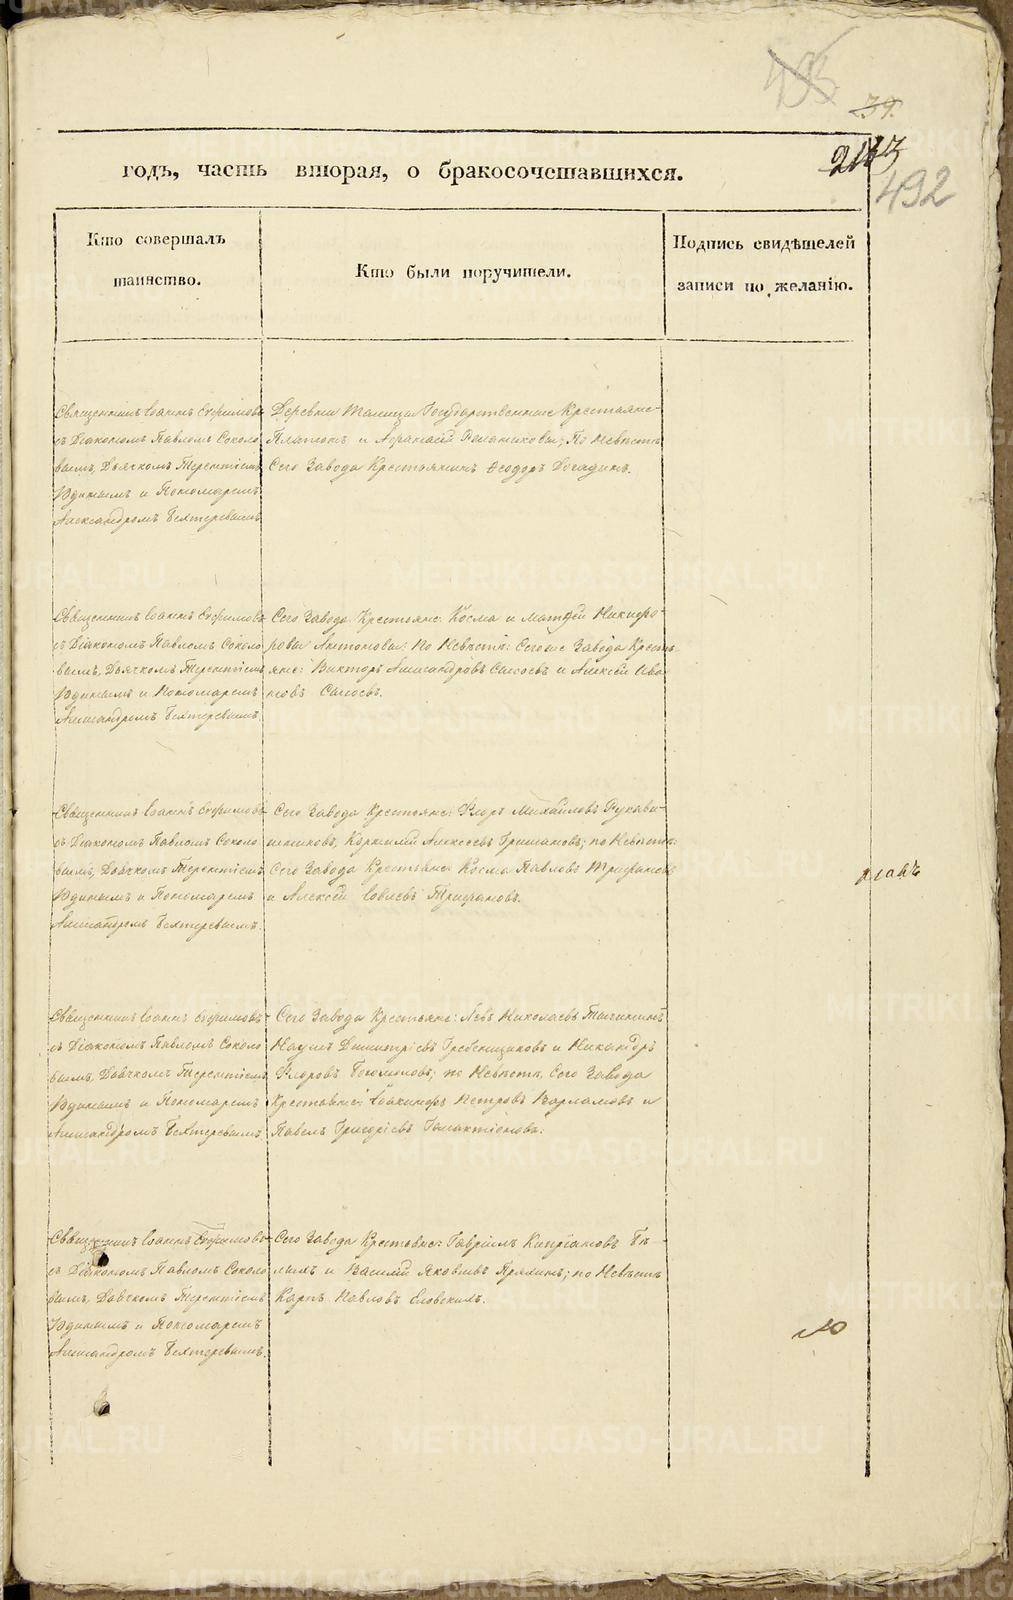 433
39.
2133
492
годъ, часть вторая, о бракосочетавшихся.
Кто совершалъ таинство.
Кто были поручители.
Подпись свидѣтелей записи по желанію.
Священникъ Іоаннъ Ефимовъ
съ Діакономъ Павломъ Соколо
вымъ, Дьячкомъ Терентіемъ
Юдинымъ и Пономаремъ
Александромъ Бехтеревымъ
Деревни Талицы Государственные Крестьяне
Платонъ и Афанасій по Невѣстѣ
Сего Завода Крестьянинъ Ѳеодоръ
Священникъ Іоаннъ Ефимовъ
съ Діакономъ Павломъ Соколо
вымъ, Дьячкомъ Терентіемъ
Юдинымъ и Пономаремъ
Александромъ Бехтеревымъ.
Сего Завода Крестьяне: Косма и Матѳей Никифо-
ровы Антоновы; по Невѣстѣ: Сегоже Завода Кресть
яне: Викторъ Александровъ Сысоевъ и Алексѣй Ива
новъ Сысоевъ.
Священникъ Іоаннъ Ефимовъ
съ Діакономъ Павломъ Соколо
вымъ, Дьячкомъ Терентіемъ
Юдинымъ и Пономаремъ
Александромъ Бехтеревымъ.
Сего Завода Крестьяне: Флоръ Михайловъ Рукави-
шниковъ, Алексѣевъ по Невѣстѣ:
Сего Завода Крестьяне Косма Павловъ Трифановъ
и Алексѣй Іовлевъ Трифановъ.
Священникъ Іоаннъ Ефимовъ
съ Діакономъ Павломъ Соколо
вымъ, Дьячкомъ Терентіемъ
Юдинымъ и Пономаремъ
Александромъ Бехтеревымъ.
Сего Завода Крестьяне: Левъ Николаевъ
Наумъ Димитріевъ Гребенщиковъ и Никандръ
Флоровъ Богомоловъ; по Невѣстѣ, Сего Завода
Крестьяне: Іоакимъ Петровъ Варламовъ и
Павелъ Григоріевъ Галактіоновъ.
Священникъ Іоаннъ Ефимовъ
съ Діакономъ Павломъ Соколо
вымъ, Дьячкомъ Терентіемъ
Юдинымъ и Пономаремъ
Александромъ Бехтеревымъ.
Сего Завода Крестьяне: Гавріилъ Кипріановъ Бѣ-
лыхъ и Василій Яковлевъ Пряхинъ; по Невѣстѣ
Карпъ Павловъ Еловскихъ.
METRIKI.GASO-URAL.RU